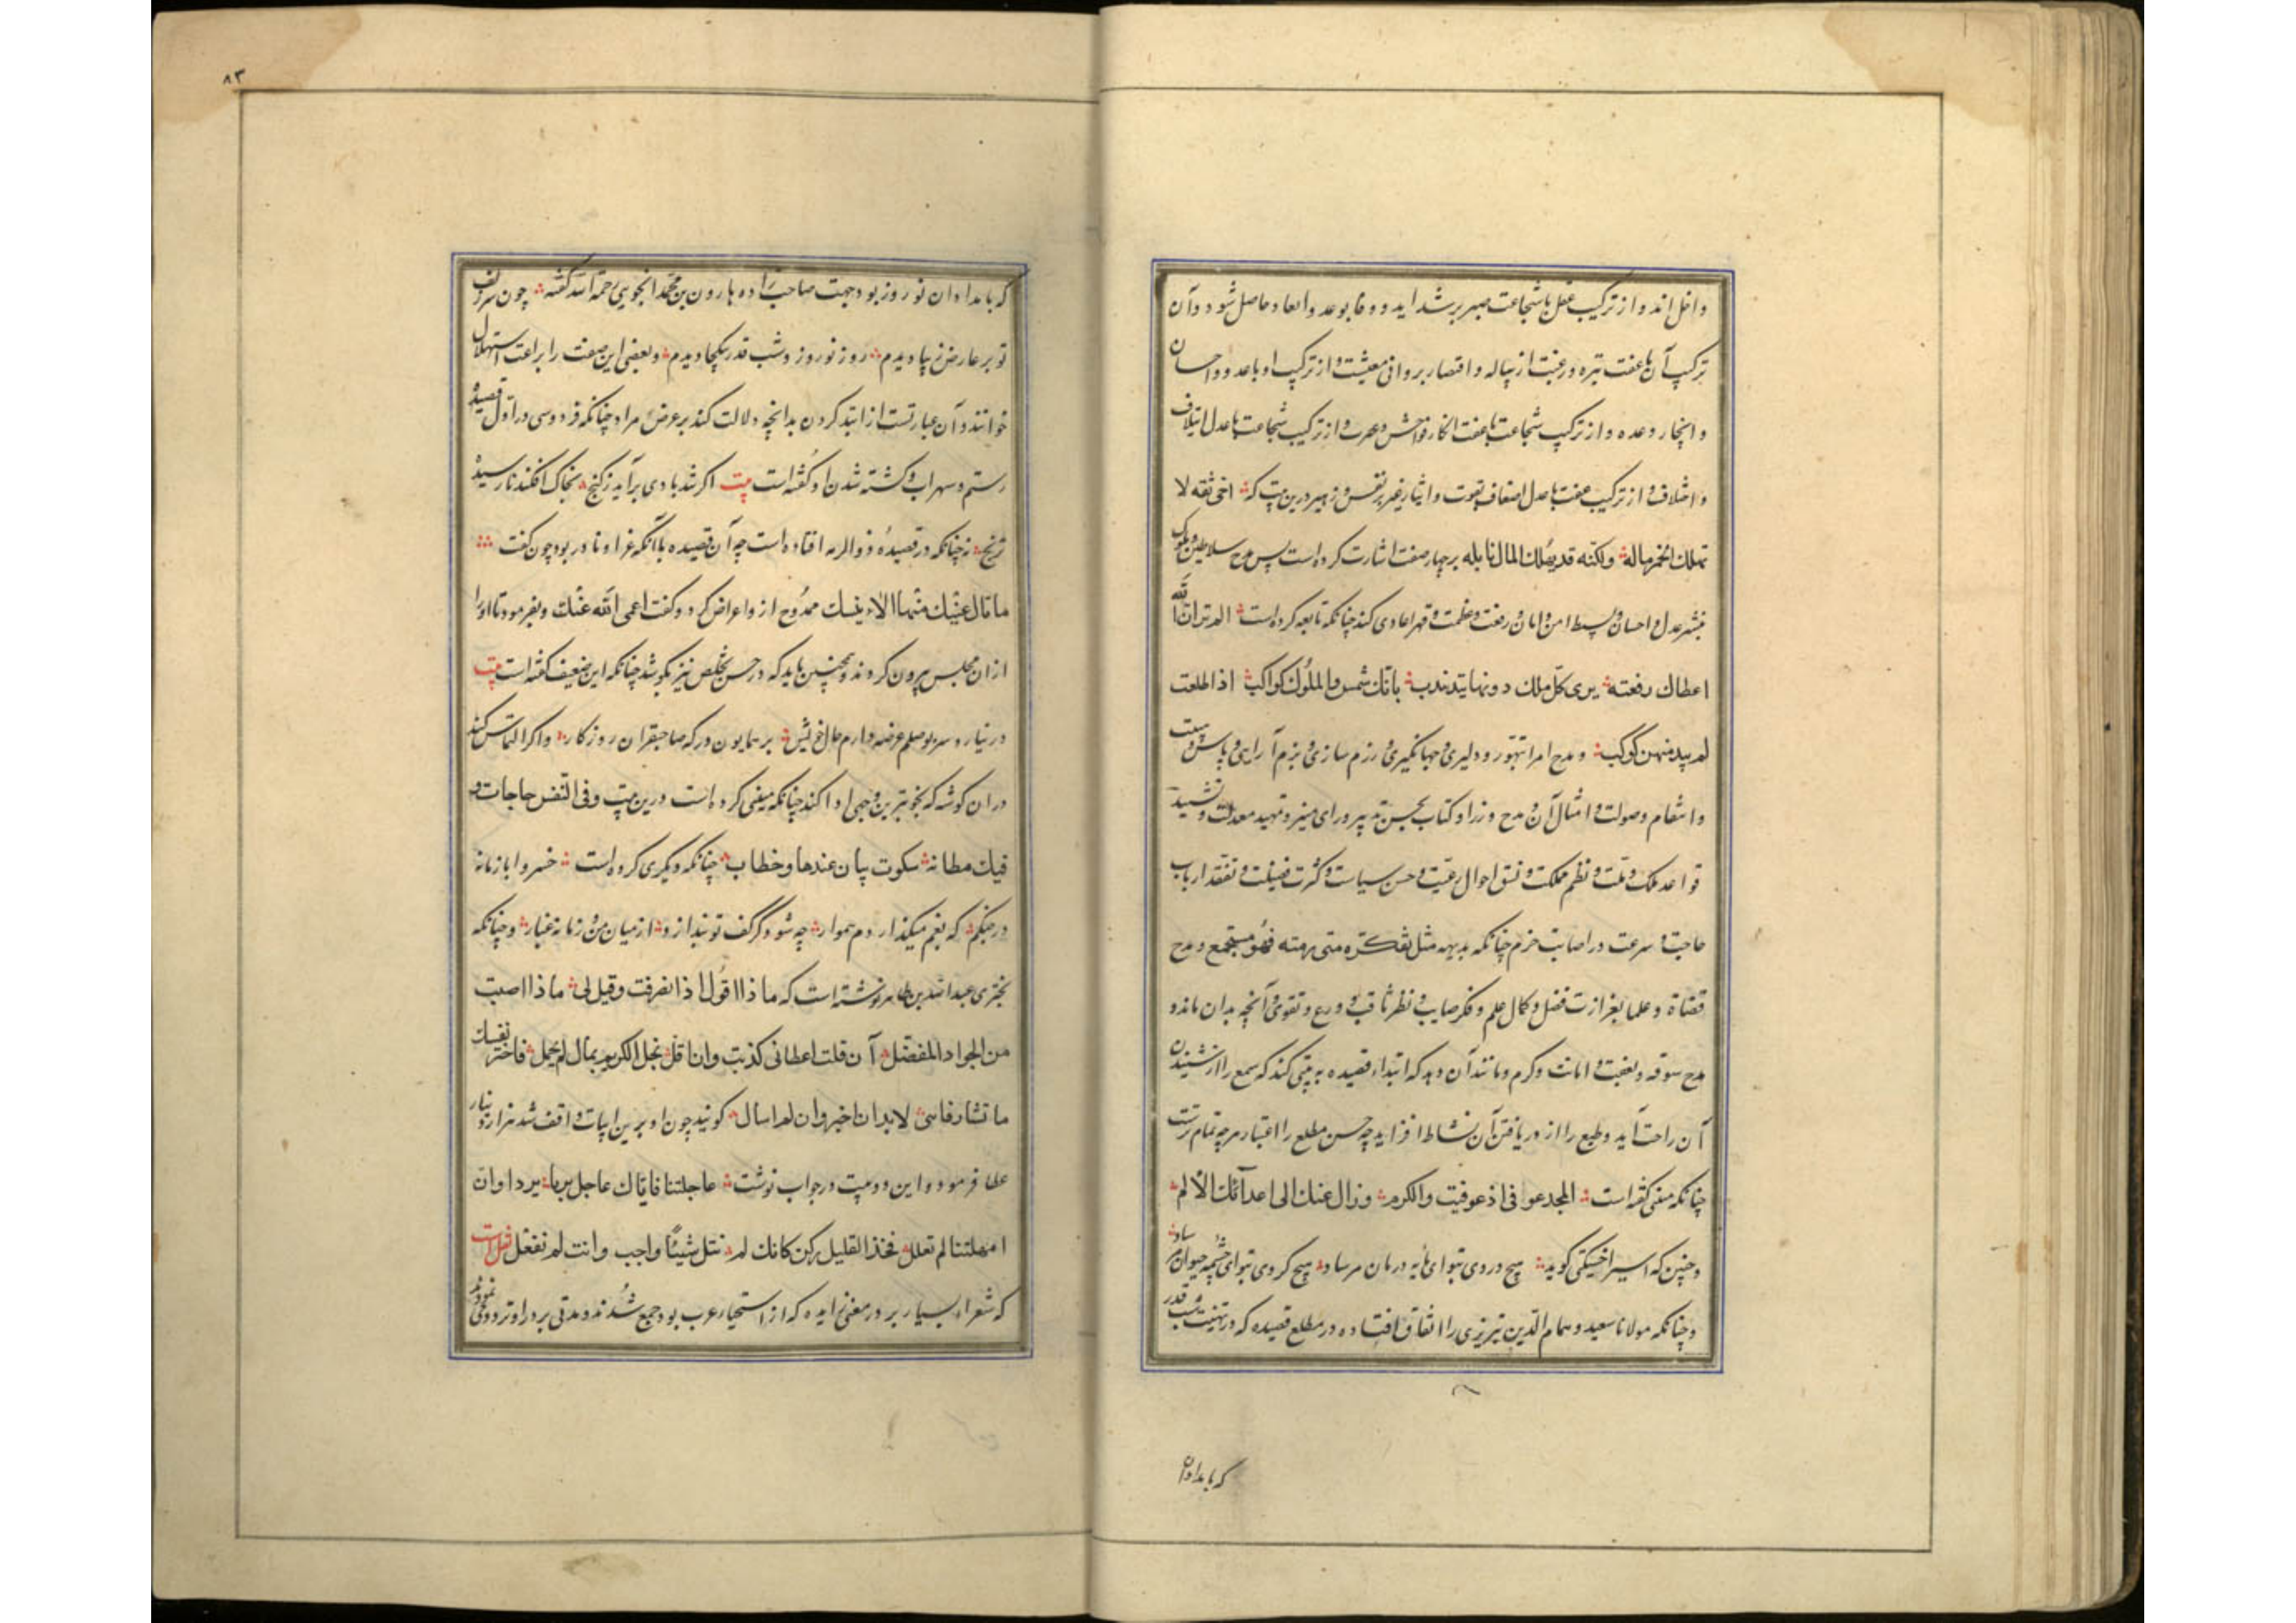 داخل‌اند و از ترکیب عقل با شجاعت صبر بر شداید و وفا بوعد و ابعاد حاصل شود و آن
ترکیب آن با عفت تنزه و رغبت از پیاله و اقتصار بر وافی معیشت و از ترکیب او با عدو و احسان
و انجاز وعده و از ترکیب شجاعت با عفت انکار فواحش و از ترکیب شجاعت با عدل ایتلاف
و اختلاف و از ترکیب عفت با عدل اضعاف بقوت و ایثار غیر بر نفس و زهیر درین بیت که اخی ثقه لا
تهلك الخمر ماله ولكنه قد يهلك المال نايله بر چهار صفت اشارت کرده است پس مدح سلاطین و ملوک
بنشر عدل و احسان و بسط امن و امان و رفعت و عظمت و قهر اعادی کند چنانکه نابغه کرده است الم تر ان الله
اعطاك رفعته يرى كل ملك دونها يتذبذب بانك شمس والملوك كواكب اذا طلعت
لم يبد منهن كوكب و مدح امرا بتهور و دلیری و جهانگیری و رزم سازی و بزم آرایی و پاس و هیبت
و انتقام و صولت و امثال آن و مدح وزرا و کتاب بحسن تدبیر و رای منیر و تمهید معدلت و تشیید
قواعد ملک و ملت و نظم مملکت و نسق احوال رعیت و حسن سیاست و کثرت فضیلت و تفقد ارباب
حاجت و سرعت در اصابت حزم چنانکه بدیهه مثل تفکره متی رمته فهو مستجمع و مدح
قضاة و علما بغزارت فضل و کمال علم و فکر صایب و نظر ثاقب و ورع و تقوی و آنچه بدان ماند و
مدح سوقه و بعفت و امانت و کرم و مانند آن و بدکه ابتداء قصیده به بیتی کند که سمع را از شنیدن
آن راحت آید و طبع را از دریافتن آن نشاط افزاید چه حسن مطلع را اعتبار هر چه تمام ترست
چنانکه متنبی گفته است المجد عوفی اذ عوفیت والکرم وزال عنك الى اعدائك الألم
و چنین که اسیر اخسیکتی گوید هیچ دردی بتو ای مایه درمان مرساد هیچ گردی بتو ای چشمه حیوان مرساد
و چنانکه مولانا سعید و همام الدین تبریزی را اتفاق افتاده در مطلع قصیده که در تهنیت شب قدر
که بامدادان
۸۳
که بامدادان نوروز بود جهت صاحب زاده هارون بن محمد الجوینی رحمة الله گفته چون سر زلف
تو بر عارض زیبا دیدم روز نوروز و شب قدر بیکجا دیدم و بعضی این صنعت را براعت استهلال
خوانند و آن عبارتست از ابتدا کردن بدانچه دلالت کند بر عرض مراد چنانکه فردوسی در اول قصیده
رستم و سهراب و کشته شدن او گفته است بیت اگر تند بادی برآید ز کنج بخاک افکند نارسیده
ترنج نه چنانکه در قصیده ذو الرمه افتاده است چه آن قصیده با آنکه غرا و نادر بود چون گفت
ما بال عينك منها الماء ينسك ممدوح ازو اعراض کرد و گفت اعمی الله عینك و بفرمود تا او را
از ان مجلس بیرون کردند و همچنین باید که در حسن تخلص نیز بکوشد چنانکه این ضعیف گفته است بیت
در نیارد سر بوصلم عرضه دارم حال خویش بر همایون درگه صاحبقران روزگار و اگر التماس کند
در ان کوشد که بخوبترین وجهی ادا کند چنانکه متنبی کرده است درین بیت وفى النفس حاجات و
فيك فطانة سكوت بيان عندها وخطاب چنانکه دیگری کرده است خسروا با زمانه
در جنگم که بغم میگذارد دم هموار چه شود گر کف تو بندازد از میان من و زمانه غبار و چنانکه
بحتری عبدالله بن طاهر نوشته است که ماذا اقول اذا انصرفت وقيل لى ماذا اصبت
من الجواد المفضل ان قلت اعطانى كذبت وان اقل بخل الكريم بمال لم يجمل فاختر لنفسك
ما تشاء فانى لابد ان اخبر وان لم اسال گویند چون او برین ابیات واقف شد هزار دینار
عطا فرمود و این دو بیت در جواب نوشت عاجلتنا فاتاك عاجل برنا نزرا وان
امهلتنا لم تقلل فخذ القليل وكن كانك لم تنل شيئا واجب وانت لم نفعل نقل است
که شعراء بسیار بر در معن زایده که از اسخیاء عرب بود جمع شدند و مدتی بر در او تردد می نمودند